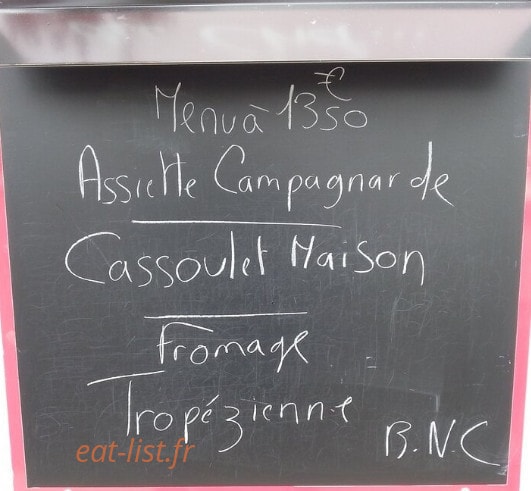 Menu à 13€50
Assiette Campagnarde
Cassoulet Maison
Fromage
Tropézienne
B.N.C
eat-list.fr